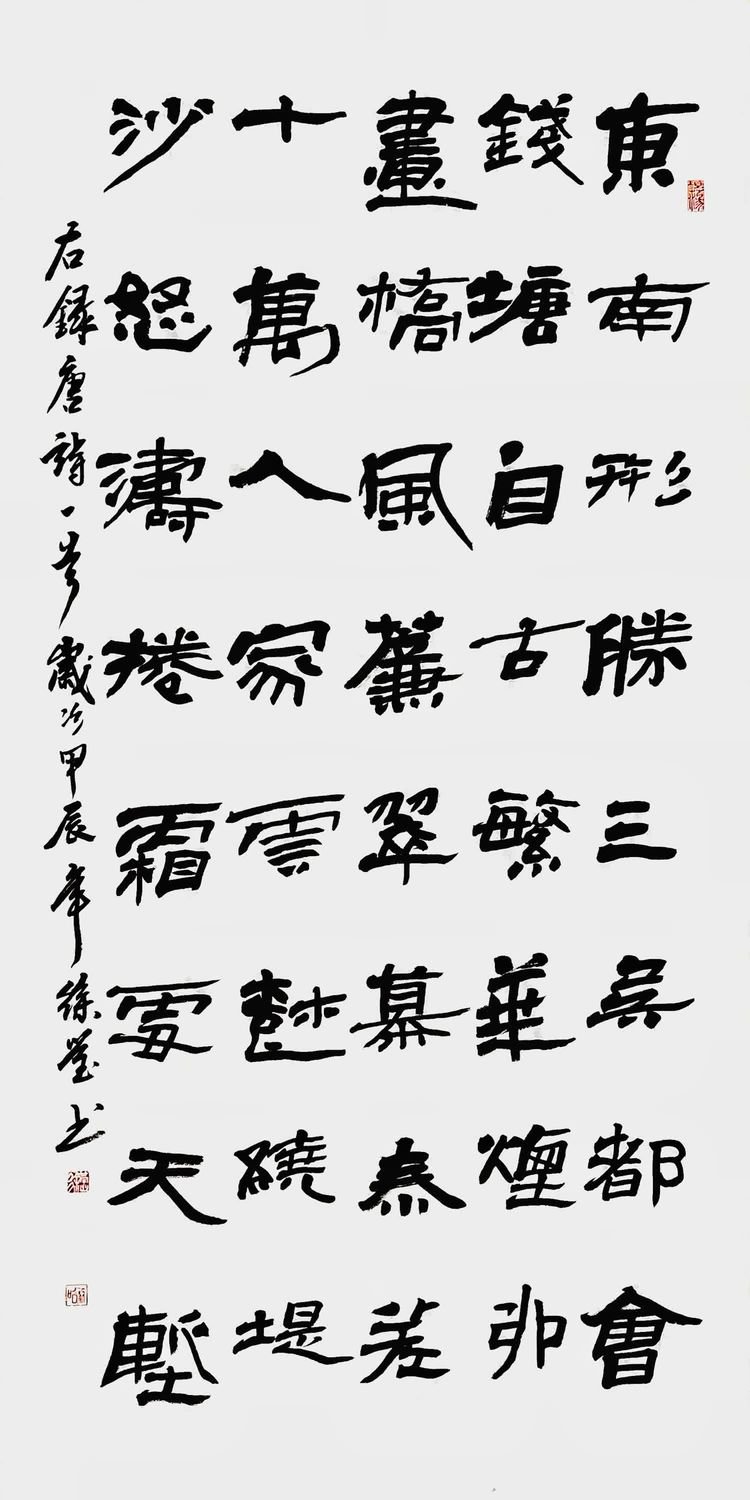 東南形勝三吳都會
錢塘自古繁華煙柳
畫橋風簾翠幕參差
十萬人家雲樹繞堤
沙怒濤捲霜雪天塹
右録唐詩一首歲次甲辰年徐瑩書